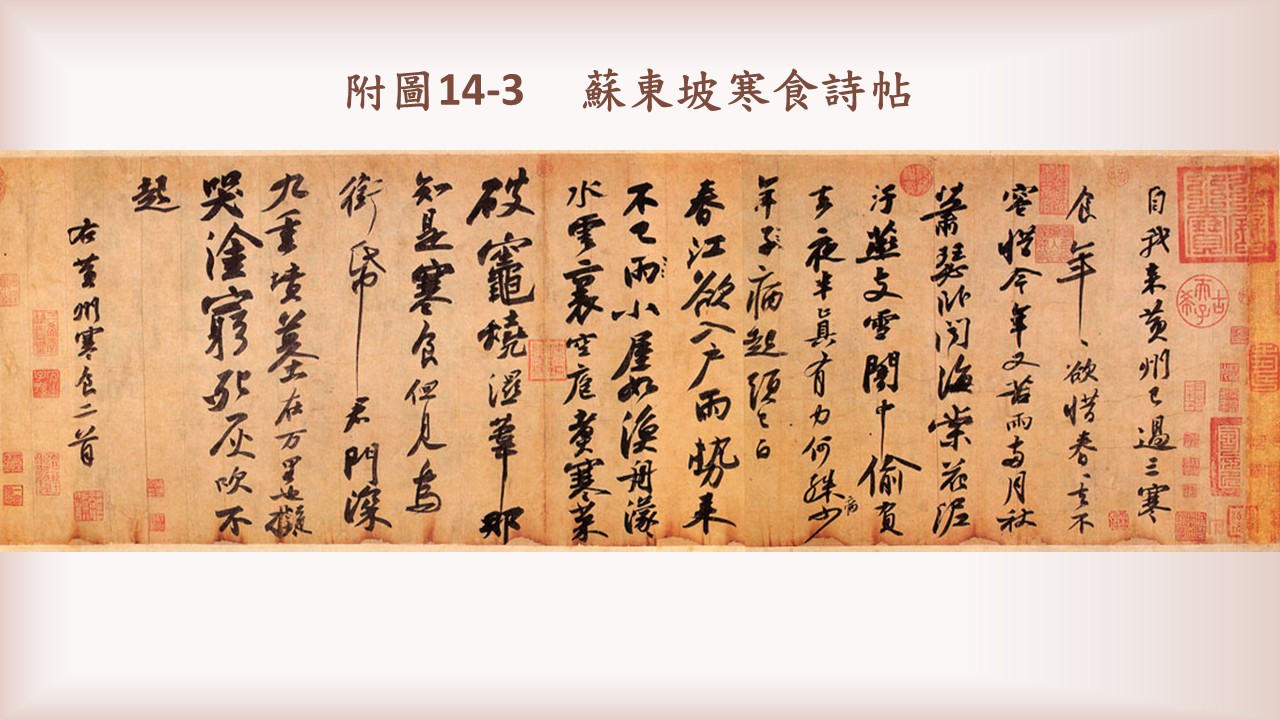 附圖14-3 蘇東坡寒食詩帖
自我来黄州已過三寒
食年ヽ欲惜春ヽ去不
容惜今年又苦雨兩月秋
蕭瑟卧聞海棠花泥
汙燕支雪闇中偷負
去夜半真有力何殊少
病
年子病起頭已白
春江欲入户雨勢来
不已雨小屋如漁舟濛ヽ
水雲裏空庖煑寒菜
破竈燒濕葦那
知是寒食但見烏
銜帋君門深
九重墳墓在万里也擬
哭塗窮死灰吹不
起
右黄州寒食二首